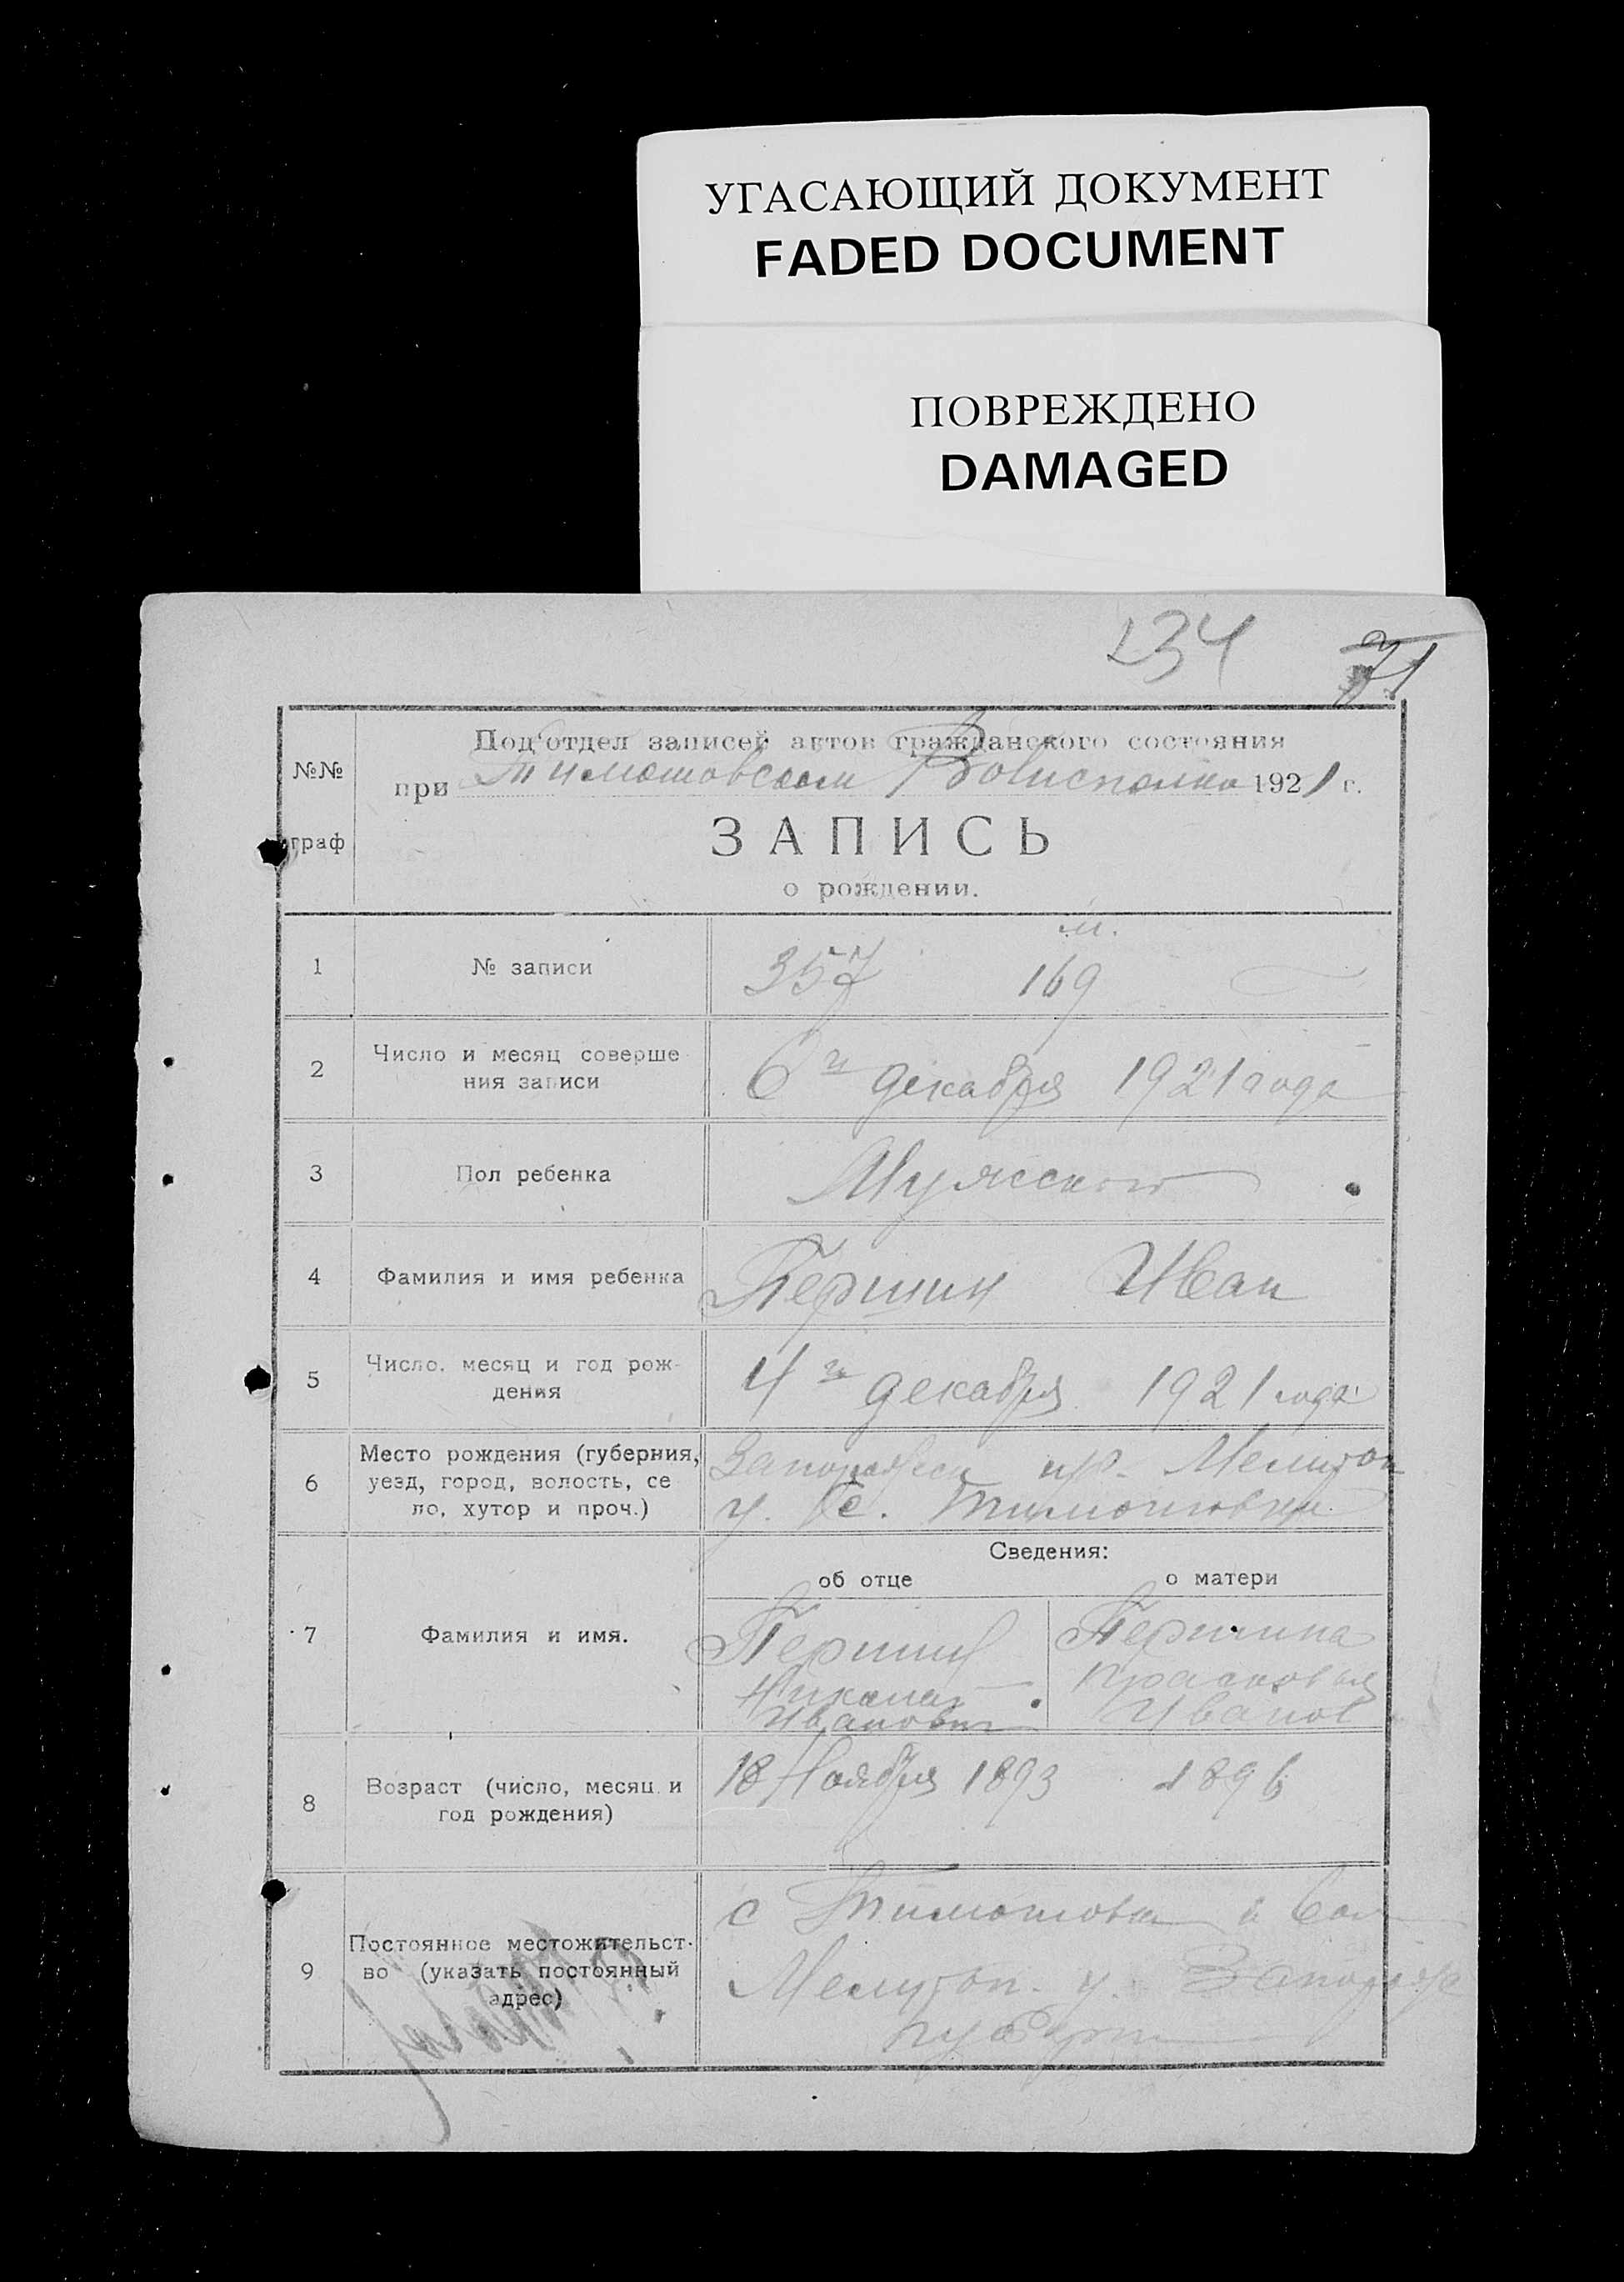 УГАСАЮЩИЙ ДОКУМЕНТ
FADED DOCUMENT
ПОВРЕЖДЕНО
DAMAGED
234
71
№№ граф
Под'отдел записей актов гражданского состояния
при Тимошовском Волисполко 1921 г.
ЗАПИСЬ
о рождении.
м.
1 № записи 357 169
2 Число и месяц соверше
ния записи 6го декабря 1921 года
3 Пол ребенка Мужской
4 Фамилия и имя ребенка Першин Иван
5 Число. месяц и год рож-
дения 4го декабря 1921 года
6 Место рождения (губерния, Мелитоп
уезд, город, волость, се
ло, хутор и проч.) у. с. Тимошовка
Сведения:
об отце о матери
7 Фамилия и имя. Першин Першина
Николай Прасковья
Иванович Иванов
8 Возраст (число, месяц и 18 Ноября 1893 1896
год рождения)
9 Постоянное местожительст-
во (указать постоянный
адрес)
с Тимошовка
Мелитоп. у. Запорож
губерн